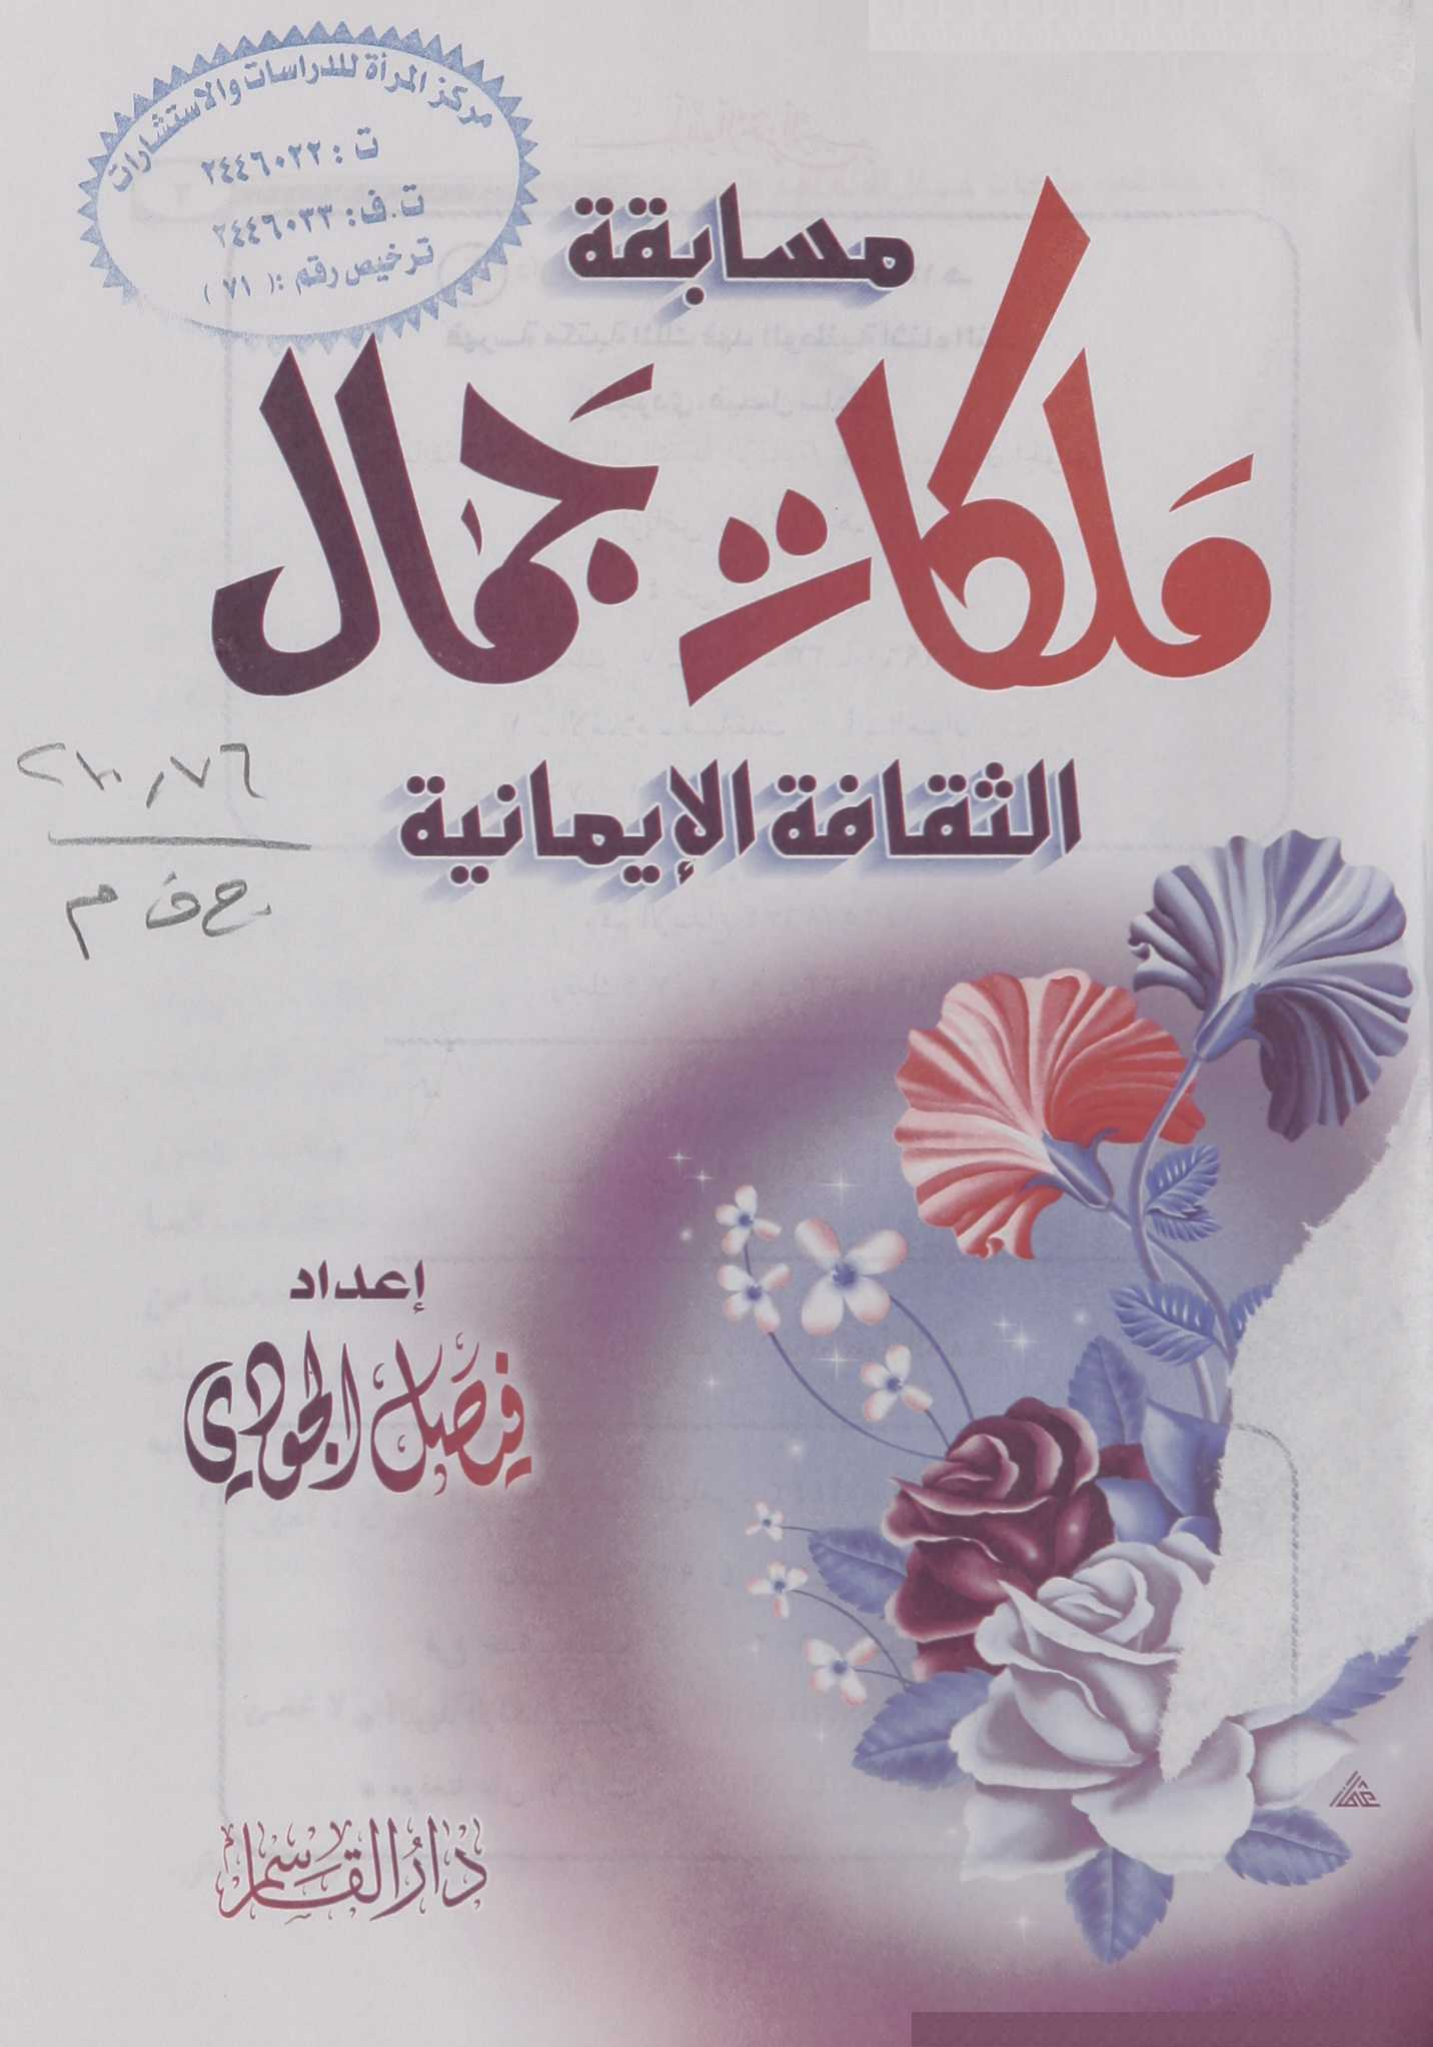 مركز المرأة للدراسات والاستشارات
ت : ٢٤٤٦٠٢٢
ت.ف: ٢٤٤٦٠٣٣
ترخيص رقم : ( ٧١ )
مسابقة
مَلكات جَمال
الثقافة الإيمانية
ح ف م
إعداد
فيصل الجودي
دار القاسم